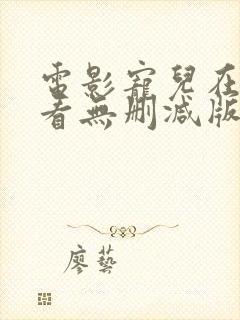 電影寵兒在
看無刪減版
廖藝